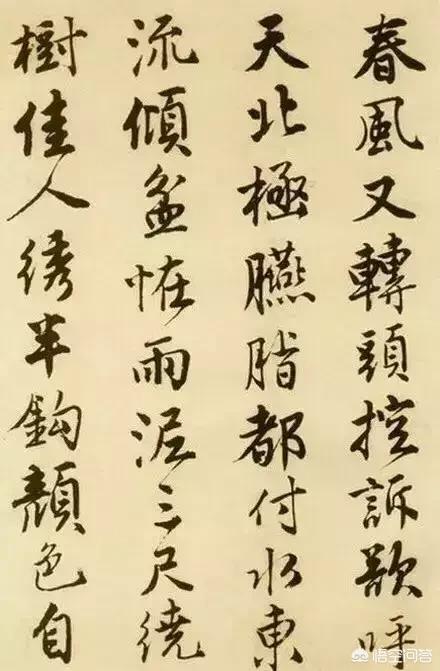 春風又轉頭控訴欲呼
天北極臙脂都付水東
流傾盆恠雨泥三尺繞
樹佳人綉半鈎顏色自
悟空问答